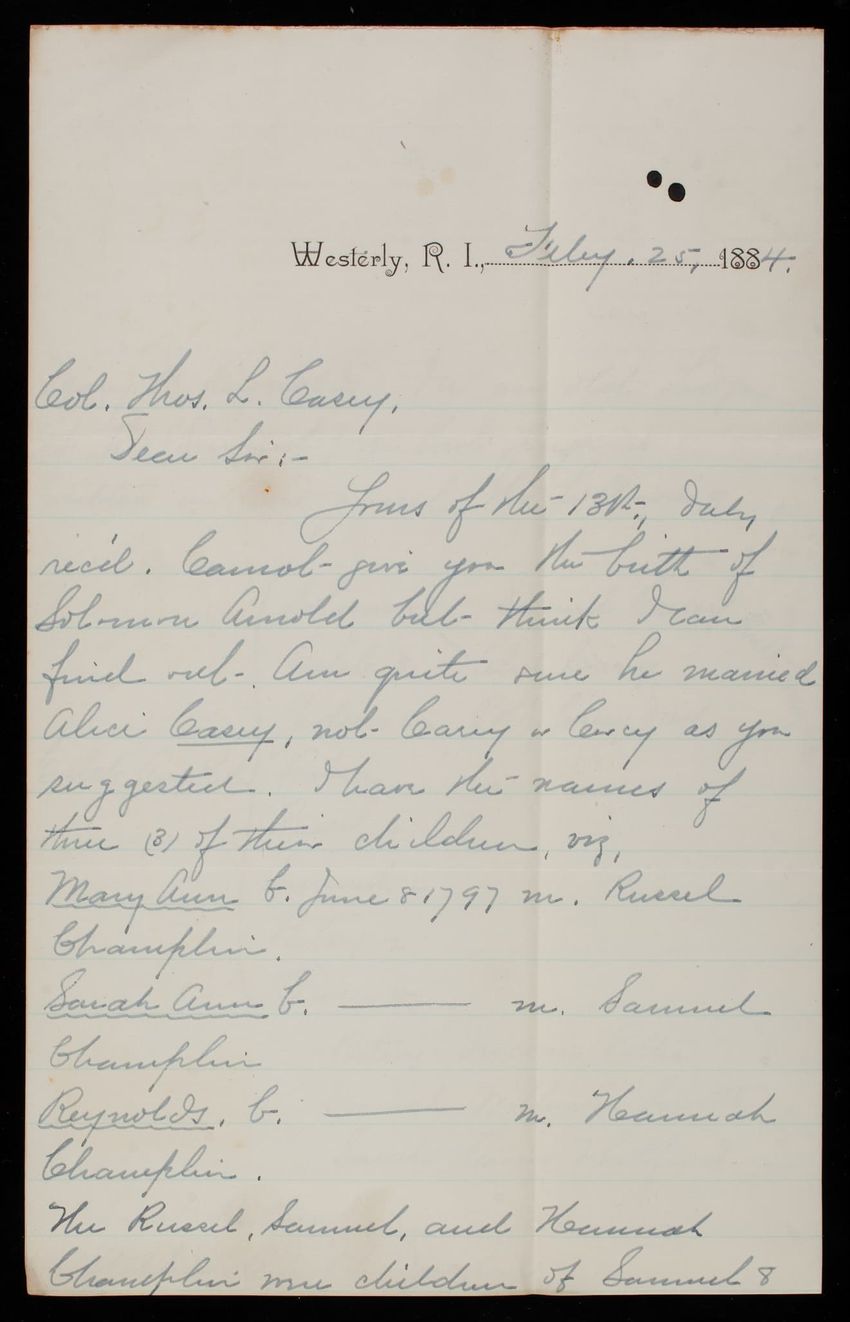 Westerly, R. I., Feby. 25, 1884.
Col. Thos. L. Casey,
Dear Sir:-
Yours of the 13th, duly
rec'd. Cannot give you the birth of
Solomon Arnold but think I can
find out. Am quite sure he married
Alice Casey, not Carey or as you
suggested. I have the names of
three (3) of their children, viz,
Mary Ann b. June 8 1797 m. Russel
Champlin.
Sarah Ann b. ——— m. Samuel
Champlin
Reynolds, b. ——— m. Hannah
Champlin.
The Russel, Samuel, and Hannah
Champlin were children of Samuel 8